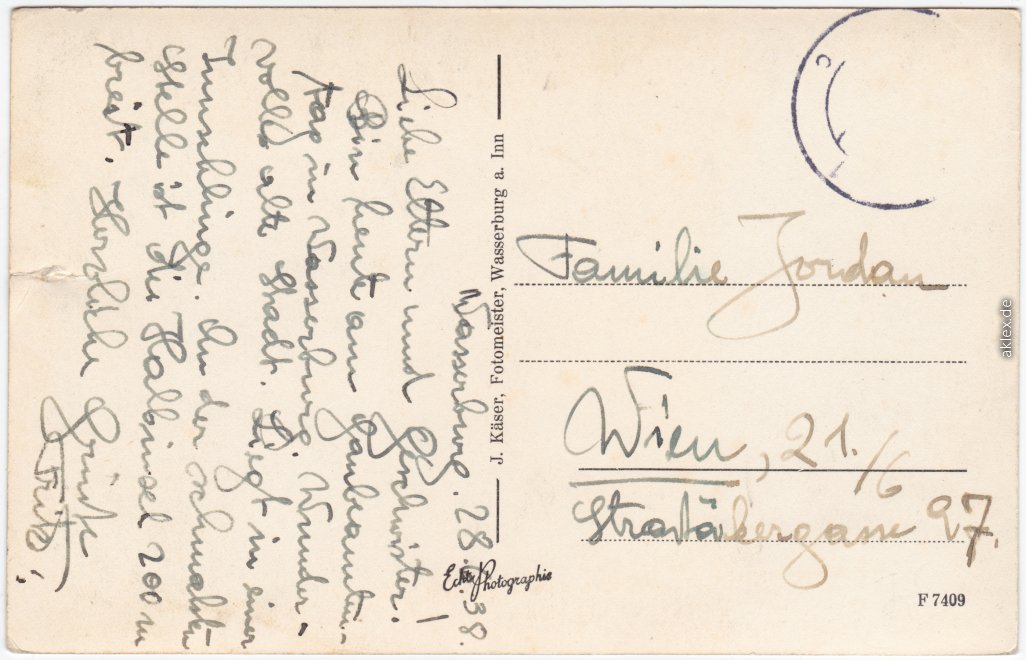 Wasserburg. 28.6.38.
Liebe Eltern und Geschwister!
Bin heute am Gaubeamten-
tag in Wasserburg. Wunder-
volle alte Stadt. Liegt in einer
Innschlinge. An der schmalsten
Stelle ist die Halbinsel 200 m
breit. Herzliche Grüße
Fritz.
J. Käser, Fotomeister, Wasserburg a. Inn
Echte Photographie
Familie Jordan
Wien, 21./6
27.
F 7409
aklex.de